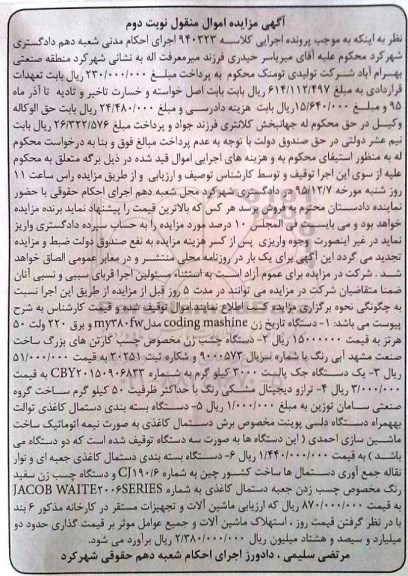 آگهی مزایده اموال منقول نوبت دوم
نظر به اینکه به موجب پرونده اجرایی کلاسه ۹۴۰۲۲۳ اجرای احکام مدنی شعبه دهم دادگستری
شهرکرد محکوم علیه آقای میریاسر حیدری فرزند میرمعرفت اله به نشانی شهرکرد منطقه صنعتی
بهرام آباد شرکت تولیدی تومنک محکوم به پرداخت مبلغ ۲۳۰/۰۰۰/۰۰۰ ریال بابت تعهدات
قراردادی به مبلغ ۶۱۴/۱۱۲/۴۹۷ ریال بابت بابت اصل خواسته و خسارت تاخیر و تادیه تا آذر ماه
۹۵ و مبلغ ۱۵/۶۴۰/۰۰۰ ریال بابت هزینه دادرسی و مبلغ ۲۴/۴۸۰/۰۰۰ ریال بابت حق الوکاله
وکیل در حق محکوم له جهانبخش کلانتری فرزند جواد و پرداخت مبلغ ۲۶/۳۲۲/۵۷۶ ریال بابت
نیم عشر دولتی در حق صندوق دولت با توجه به عدم پرداخت مبالغ فوق و بنا به درخواست محکوم
له به منظور استیفای محکوم به و هزینه های اجرایی اموال قید شده در ذیل برگه متعلق به محکوم
علیه از سوی این اجرا توقیف و توسط کارشناس توصیف و ارزیابی و از طریق مزایده راس ساعت ۱۱
روز شنبه مورخه ۹۵/۱۲/۷ در دادگستری شهرکرد محل شعبه دهم اجرای احکام حقوقی با حضور
نماینده دادستان محترم به فروش برسد هر کس که بالاترین قیمت را پیشنهاد نماید برنده مزایده
خواهد بود و می بایست فی المجلس ۱۰ درصد مورد مزایده را به حساب سپرده دادگستری واریز
نماید در غیر اینصورت وجوه واریزی پس از کسر هزینه مزایده به نفع صندوق دولت ضبط و مزایده
تجدید می گردد این آگهی برای یک بار در روزنامه محلی منتشر و در معابر عمومی الصاق خواهد
شد . شرکت در مزایده برای عموم آزاد است به استثناء مسئولین اجرا قربای سببی و نسبی آنان
ضمنا متقاضیان شرکت در مزایده می توانند در مدت ۵ روز قبل از مزایده از طریق این اجرا نسبت
به چگونگی نحوه برگزاری مزایده کسب اطلاع نمایند.اموال توقیف شده و قیمت کارشناس به شرح
پیوست می باشد: ۱- دستگاه تاریخ زن coding mashine مدل my۳۸۰fw و برق ۲۲۰ ولت ۵۰
هرتز به قیمت ۱۵۰۰۰۰۰۰ ریال ۲- دستگاه چسب زن مخصوص چسب کارتن های بزرگ ساخت
صنعت مشهد آبی رنگ با شماره سریال ۹۰۰۰۵۷۳ و شکاره ثبت ۳۰۲۵۱ به قیمت ۵۱/۰۰۰/۰۰۰
ریال ۳- یک دستگاه جک پالیت ۳۰۰۰ کیلو گرم به شماره CBY۲۰۱۵۰۹۰۶۸۳۳ به قیمت
۳/۰۰۰/۰۰۰ ریال ۴- ترازو دیجیتال مشکی رنگ با حداکثر ظرفیت ۵۰ کیلو گرم ساخت گروه
صنعتی سامان توزین به مبلغ ۱/۰۰۰/۰۰۰ ریال ۵- دستگاه بسته بندی دستمال کاغذی توالت
بهمراه دستگاه دلسی پوینت مخصوص برش دستمال کاغذی به صورت نیمه اتوماتیک ساخت
ماشین سازی احمدی ( این دستگاه ها به صورت سه دستگاه توقیف شده است که دو دستگاه می
باشد ) به قیمت ۱/۴۴۰/۰۰۰/۰۰۰ ریال ۶- دستگاه بسته بندی دستمال کاغذی جعبه ای و نوار
نقاله جمع آوری دستمال ها ساخت کشور چین به شماره CJ۱۹۰/۶ و دستگاه چسب زن سفید
رنگ مخصوص چسب زدن جعبه دستمال کاغذی به شماره JACOB WAITE۲۰۰۶SERIES
به قیمت ۸۷۰/۰۰۰/۰۰۰ ریال که ارزیابی ماشین آلات و تجهیزات مستقر در کارخانه مذکور ۶ بند
با در نظر گرفتن قیمت روز ، استهلاک ماشین آلات و جمیع عوامل موثر بر قیمت گذاری حدود دو
میلیارد و سیصد و هشتاد میلیون ریال ۲/۳۸۰/۰۰۰/۰۰۰ ریال برآورد می شود.
مرتضی سلیمی ، دادورز اجرای احکام شعبه دهم حقوقی شهرکرد